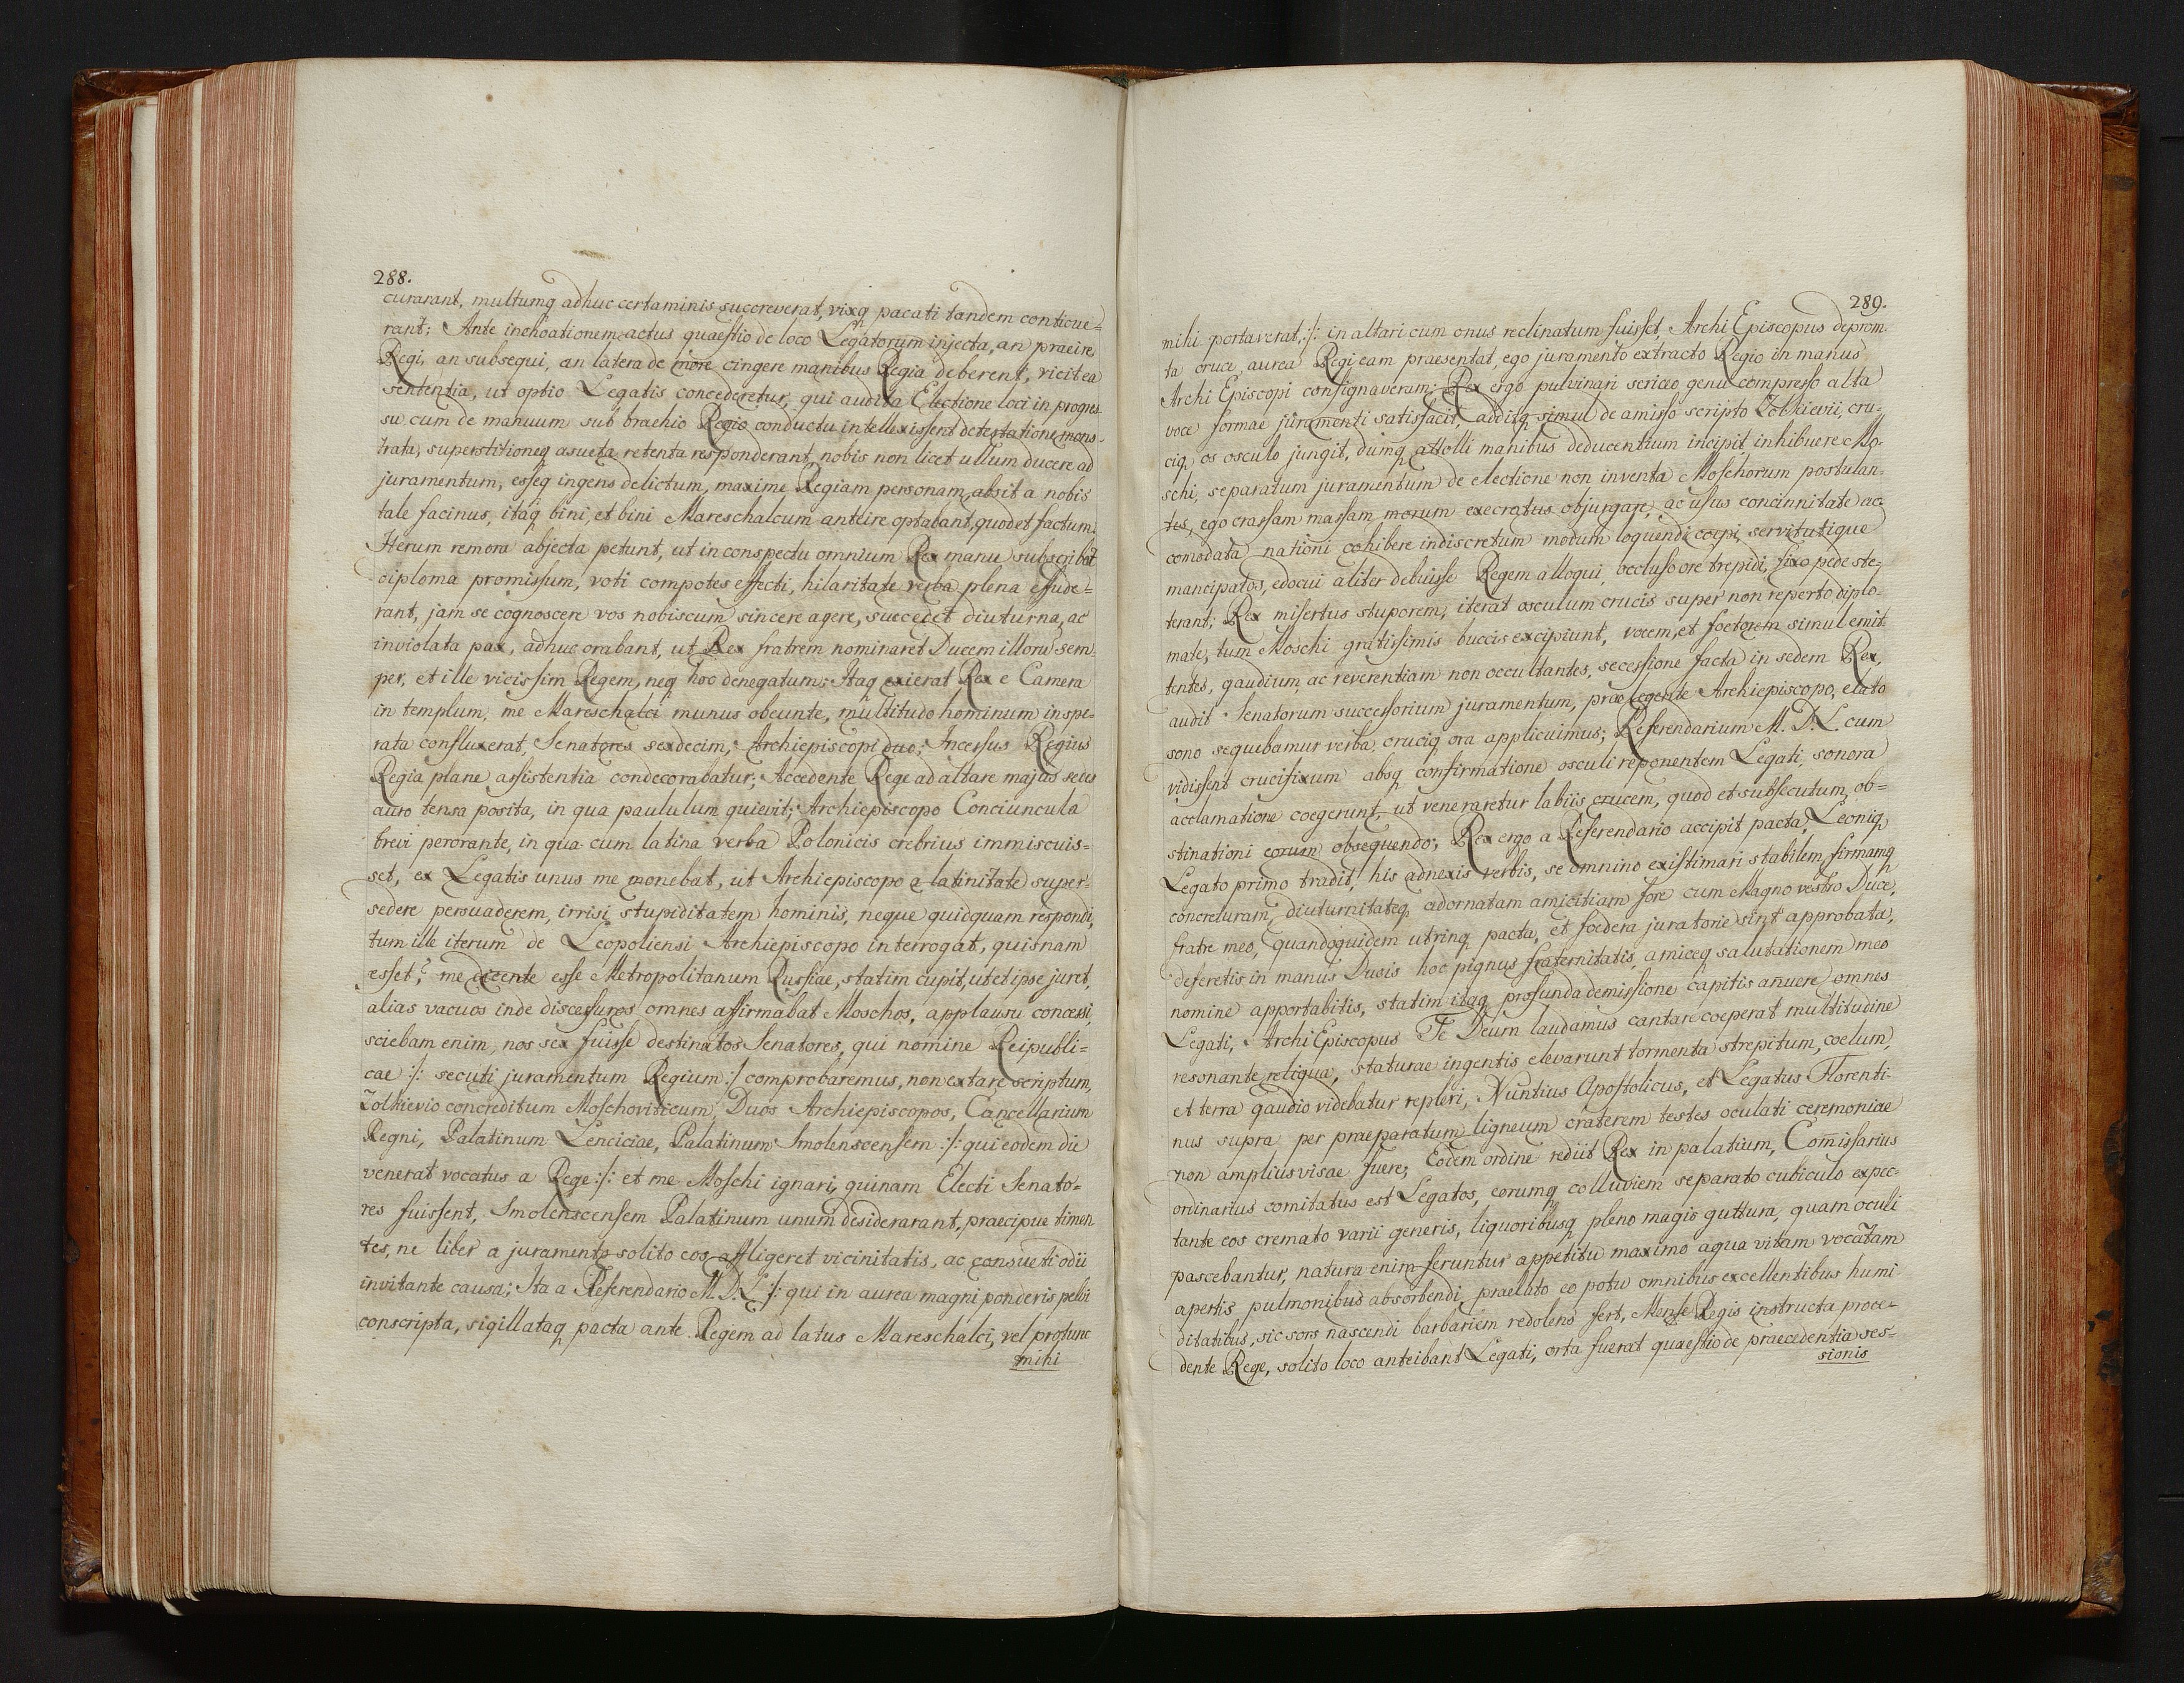 288.
curarant, multumq adhuc certaminis succreverat, vixq pacati tandem conticue=
rant; Ante inchoationem actus quaestio de loco Legatorum injecta, an praeire
Regi, an subsequi, an latera de more cingere manibus Regia deberent, vicit ea
sententia, ut optio Legatis concederetur, qui audita Electione loci in progres
su cum de manuum sub brachio Regio conductu intellexissent detestatione mons-
trata, superstitioneq asueta retenta responderant, nobis non licet ullum ducere ad
juramentum, esseq ingens delictum, maxime Regiam personam, absit a nobis
tale facinus, itaq bini, et bini Mareschalcum anteire optabant, quod et factum.
Iterum remora abjecta petunt, ut in conspectu omnium Rex manu subscribat
diploma promissum, voti compotes effecti, hilaritate verba plena effude=
rant, jam se cognoscere vos nobiscum sincere agere, succedet diuturna, ac
inviolata pax, adhuc orabant, ut Rex fratrem nominaret Ducem illorū sem
per, et ille vicissim Regem, neq hoc denegatum; Itaq exierat Rex e Camera
in templum, me Mareschalci munus obeunte, multitudo hominum inspe-
rata confluxerat, Senatores sexdecim, Archiepiscopi duo; Incessus Regius
Regia plane assistentia condecorabatur; Accedente Rege ad altare majus sedes
auro tensa posita, in qua paululum quievit; Archiepiscopo Conciuncula
brevi perorante, in qua cum latina verba Polonicis crebrius immiscuis=
set, ex Legatis unus me monebat, ut Archiepiscopo a latinitate super-
sedere persuaderem, irrisi stupiditatem hominis, neque quidquam respondi,
tum ille iterum de Leopoliensi Archiepiscopo interrogat, quisnam
esset? me dicente esse Metropolitanum Russiae, statim cupit, ut et ipse juret,
alias vacuos inde discessuros omnes affirmabat Moschos, applausu concessi,
sciebam enim, nos sex fuisse destinatos Senatores, qui nomine Reipubli=
cae :/: secuti juramentum Regium :/ comprobaremus, non extare scriptum,
Zolkievio concreditum Moschoviticum, Duos Archiepiscopos, Cancellarium
Regni, Palatinum Lenciciae, Palatinum Smolenscensem :/: qui eodem die
venerat vocatus a Rege :/: et me Moschi ignari, quinam Electi Senato=
res fuissent, Smolenscensem Palatinum unum desiderarant, praecipue timen
tes, ne liber a juramento solito eos affligeret vicinitatis, ac consueti odii
invitante causa; Ita a Referendario M. D. L :/: qui in aurea magni ponderis pelvi
conscripta, sigillataq pacta ante Regem ad latus Mareschalci, vel pro tunc
mihi
289.
mihi portaverat, :/: in altari cum onus reclinatum fuisset, Archi Episcopus deprom
ta cruce aurea Regi eam praesentat, ego juramento extracto Regio in manus
Archi Episcopi consignaveram; Rex ergo pulvinari sericeo genu compresso alta
voce formae juramenti satisfacit, additq simul de amisso scripto Zolkievii, cru-
ciq os osculo jungit, dumq attolli manibus deducentium incipit, inhibuere Mo-
schi, separatum juramentum de electione non inventa Moschorum postulan-
tes, ego crassam massam morum execratus objurgare, ac usus concinnitate ac
comodata nationi cohibere indiscretum modum loquendi coepi, servitutique
mancipatos, edocui aliter debuisse Regem alloqui, occluso ore trepidi, fixo pede ste-
terant; Rex misertus stuporem, iterat osculum crucis super non reperto diplo-
mate, tum Moschi gratissimis buccis excipiunt, vocem, et foetorem simul emit
tentes, gaudium, ac reverentiam non occultantes, secessione facta in sedem Rex,
audit Senatorum successorium juramentum, praelegente Archiepiscopo, elato
sono sequebamur verba, cruciq ora applicuimus; Referendarium M. D. L. cum
vidissent crucifixum absq confirmatione osculi reponentem Legati, sonora
acclamatione coegerunt, ut veneraretur labiis crucem, quod et subsecutum, ob=
stinationi eorum obsequendo; Rex ergo a Referendario accipit pacta, Leoniq
Legato primo tradit, his adnexis verbis, se omnino existimari stabilem, firmamq
concreturam, diuturnitateq adornatam amicitiam fore cum Magno vestro Duce,
fratre meo, quandoquidem utrinq pacta, et foedera juratorie sint approbata,
deferetis in manus Ducis hoc pignus fraternitatis, amiceq salutationem meo
nomine apportabitis, statim itaq profunda demissione capitis añuere omnes
Legati, Archi Episcopus Te Deum laudamus cantare coeperat multitudine
resonante reliqua, staturae ingentis elevarunt tormenta strepitum, coelum,
et terra gaudio videbatur repleri, Nuntius Apostolicus, et Legatus Florenti-
nus supra per praeparatum ligneum craterem testes oculati ceremoniae
non amplius visae fuere; Eodem ordine rediit Rex in palatium, Com̃issarius
ordinarius comitatus est Legatos, eorumq colluviem separato cubiculo expec-
tante eos cremato varii generis, liquoribusq pleno magis guttura, quam oculi
pascebantur, natura enim feruntur appetitu maximo aqua vitam vocatam
apertis pulmonibus absorbendi, praelato eo potu omnibus excellentibus humi-
ditatibus, sic sors nascendi barbariem redolens fert, Mensae Regis instructa proce-
dente Rege, solito loco anteibant Legati, orta fuerat quaestio de praecedentia ses=
sionis